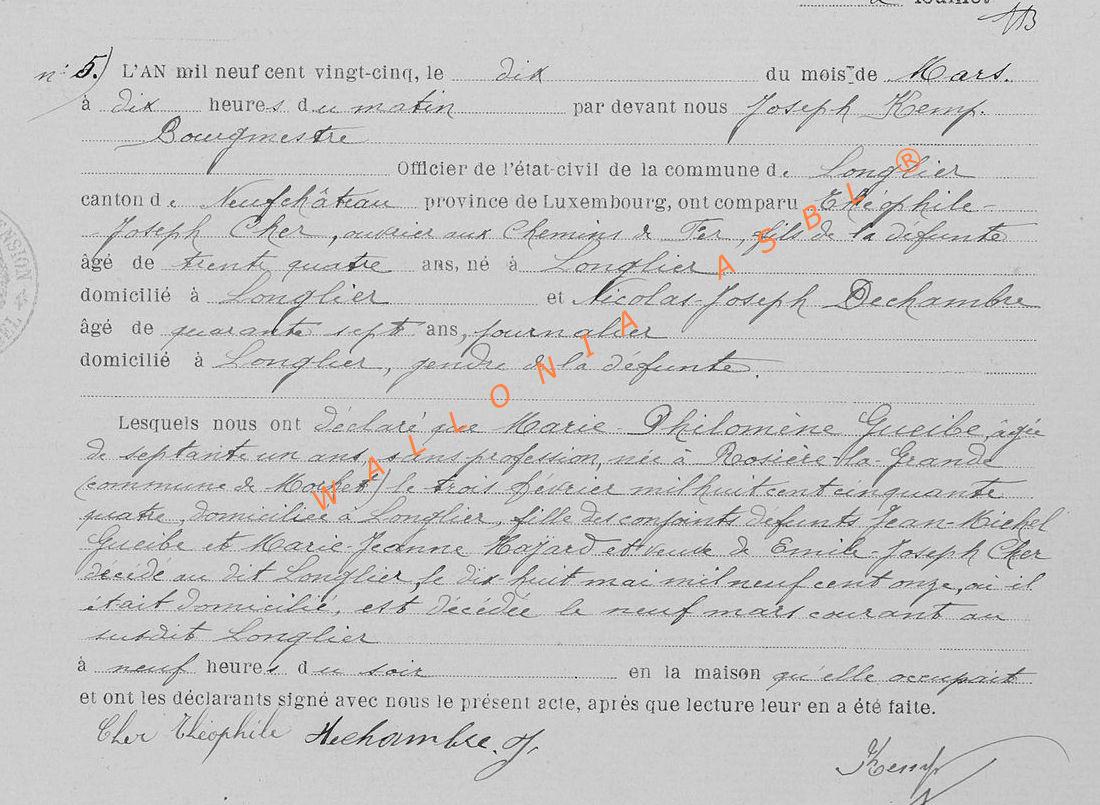 2 feuillet
nº 5.) L'AN mil neuf cent vingt-cinq, le dix du mois de Mars.
à dix heures du matin par devant nous Joseph Kemp.
Bourgmestre
Officier de l'état-civil de la commune de Longlier
canton de Neufchâteau province de Luxembourg, ont comparu Théophile-
Joseph Cher, ouvrier aux Chemins de Fer, fils de la défunte
âgé de trente quatre ans, né à Longlier
domicilié à Longlier et Nicolas-Joseph Dechambre
âgé de quarante sept ans, journalier
domicilié à Longlier, gendre de la défunte.
Lesquels nous ont déclaré que Marie-Philomène Gueibe, âgée
de septante un ans, sans profession, née à Rosière-la-Grande
(commune de Morhet) le trois février mil huit cent cinquante
quatre, domiciliée à Longlier, fille des conjoints défunts Jean-Michel
Gueibe et Marie-Jeanne Hazard et veuve de Emile-Joseph Cher
décédé au dit Longlier, le dix huit mai mil neuf cent onze, où il
était domicilié, est décédée le neuf mars courant au
susdit Longlier
à neuf heures du soir en la maison qu'elle occupait
et ont les déclarants signé avec nous le présent acte, après que lecture leur en a été faite.
Cher Théophile Dechambre. J. Kemp
WALLONIA ASBL ®